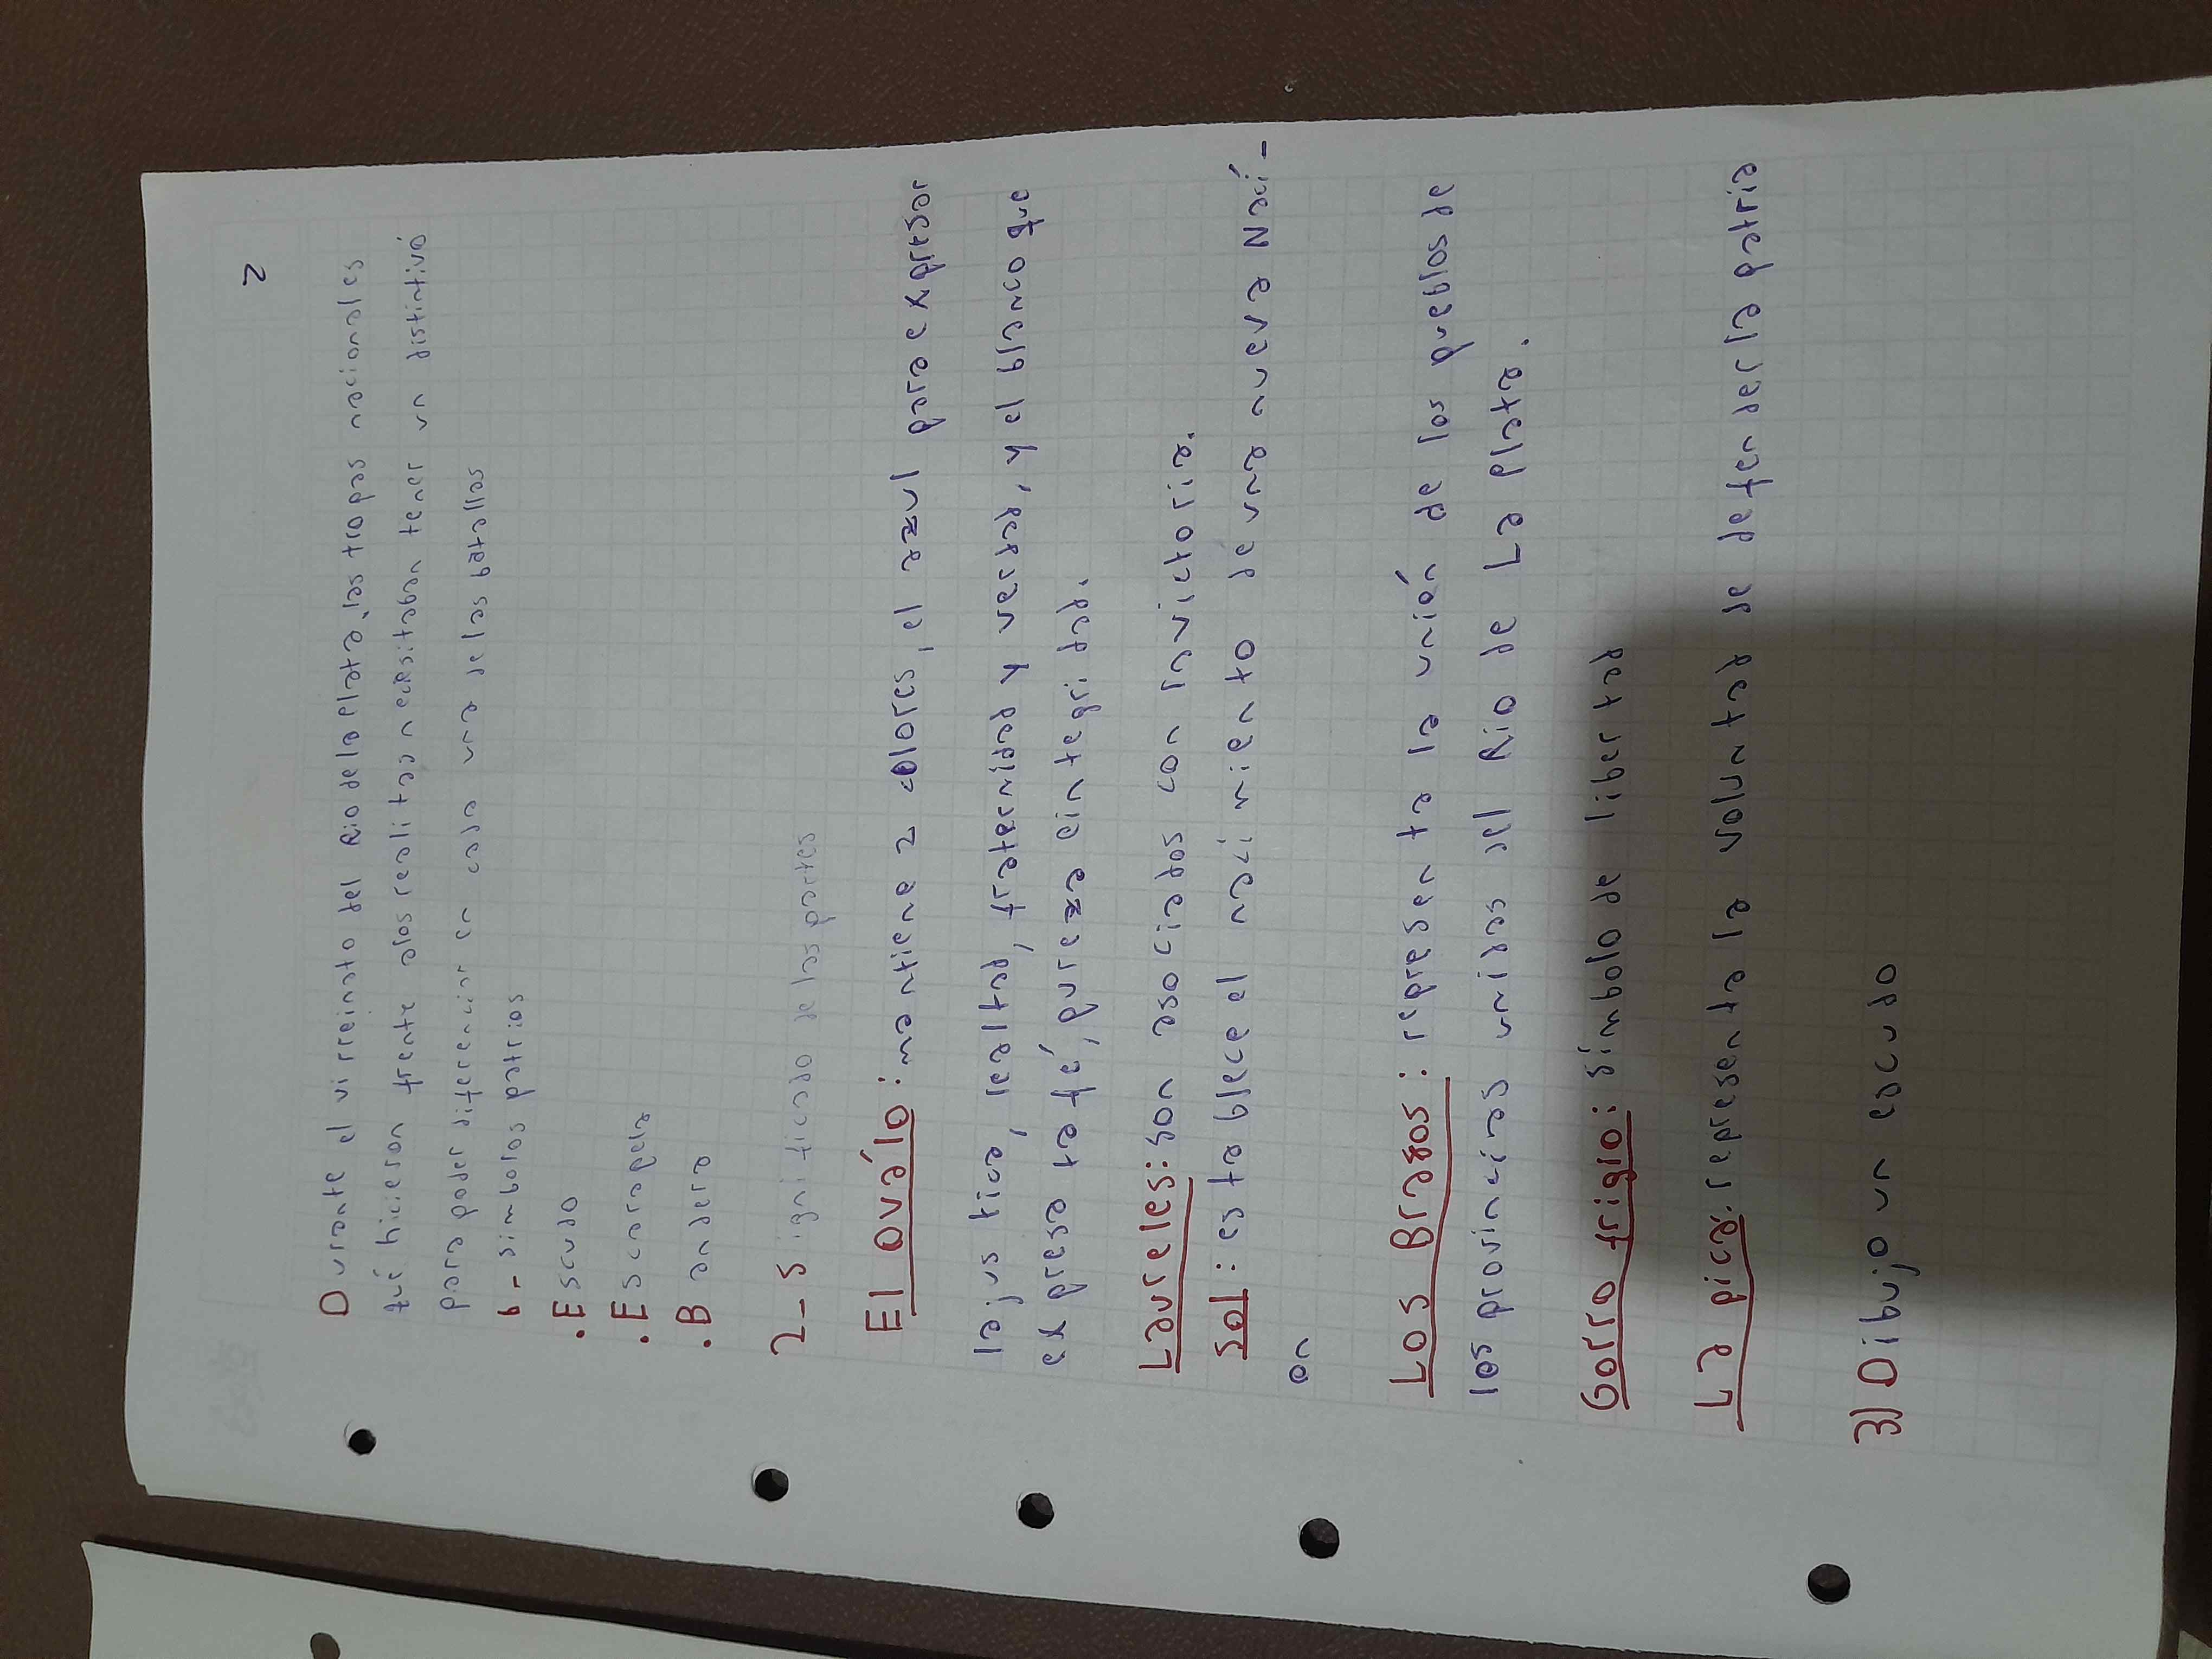 2
Durante el virreinato del Rio de la plata, las tropas nacionales
qué hicieron frente alos realitas necesitaban tener un distintivo
para poder diferenciar en cada una de las batallas
b- simbolos patrios
.Escudo
.Escarapela
.Bandera
2-Significado de las partes
El ovalo: mantiene 2 colores, el azul para expresar
la justica, lealtad, fraternidad y verdad, y el blanco que
expresa te fé, pureza e integridad.
Laureles: son asociados con lu victoria.
Sol: establece el nacimiento de una nueva Naci-
on
Los Brazos: representa la unión de los pueblos de
las provincias unidas del Rio de La plata.
Gorro frigio: símbolo de libertad
La pica: representa el a voluntad de defender la patria
3) Dibujo un escudo